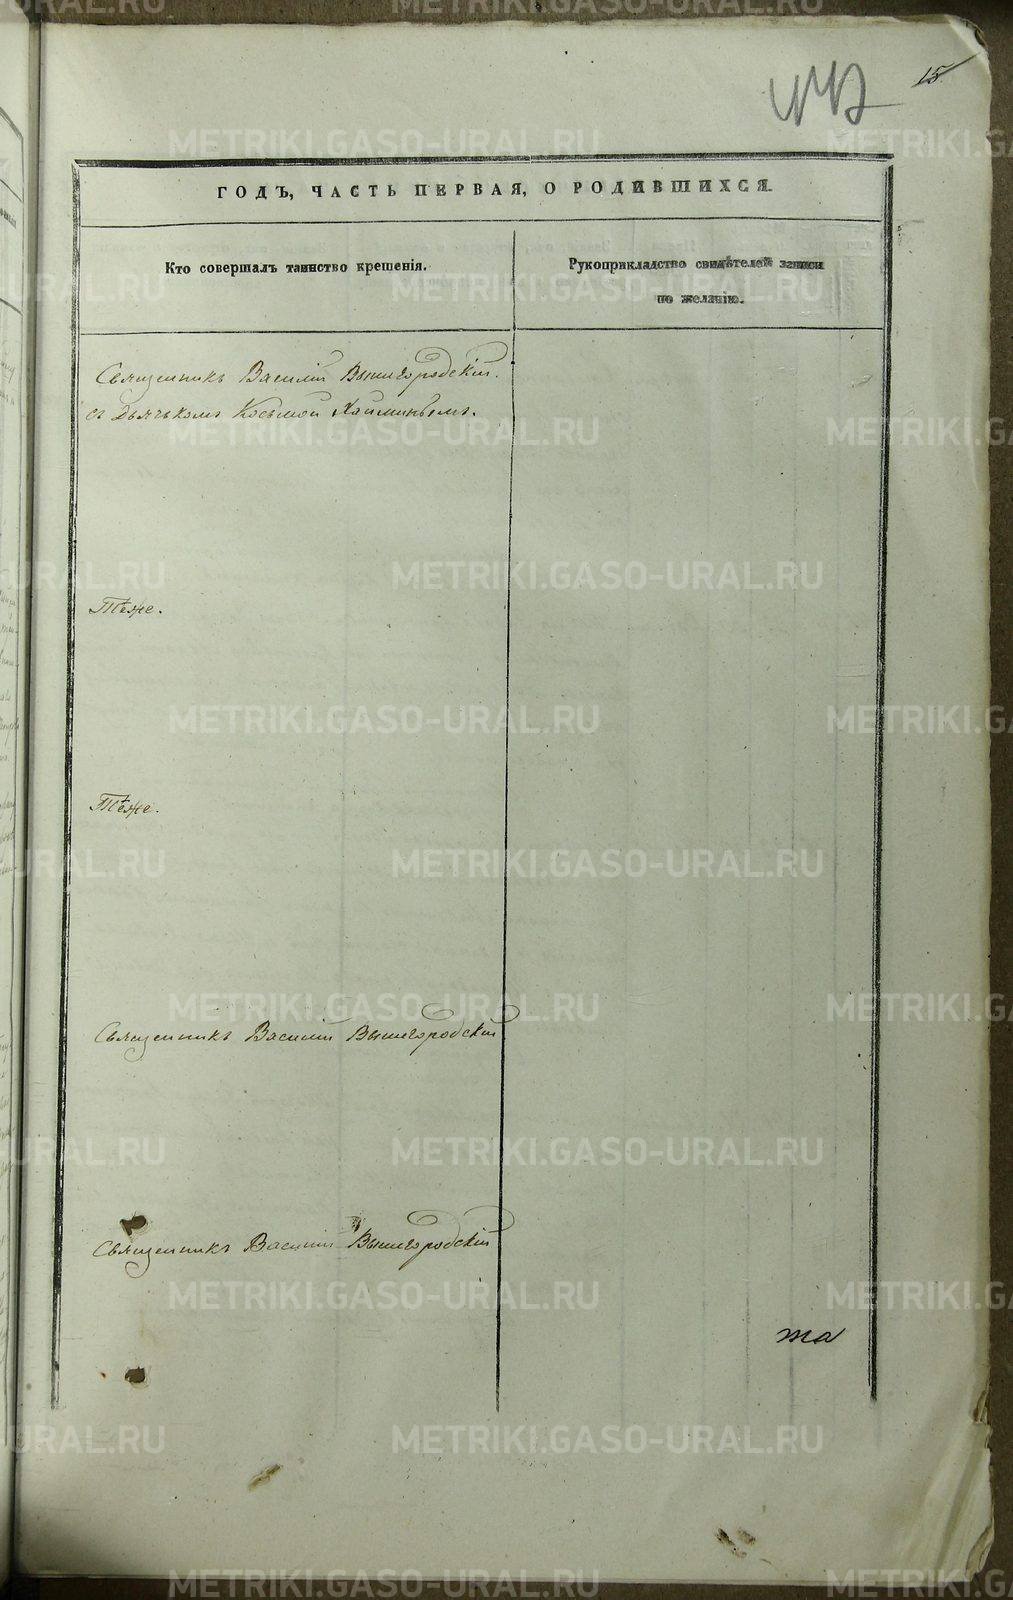 15
ГОДЪ, ЧАСТЬ ПЕРВАЯ, О РОДИВШИХСЯ.
Кто совершалъ таинство крещенія.
Рукоприкладство свидѣтелей записи
по желанію.
Священникъ Василій Вышегородскій.
съ Дьячькомъ Косьмой
Тѣже.
Тѣже.
Священникъ Василій Вышегородскій
Священникъ Василій Вышегородскій
та
METRIKI.GASO-URAL.RU